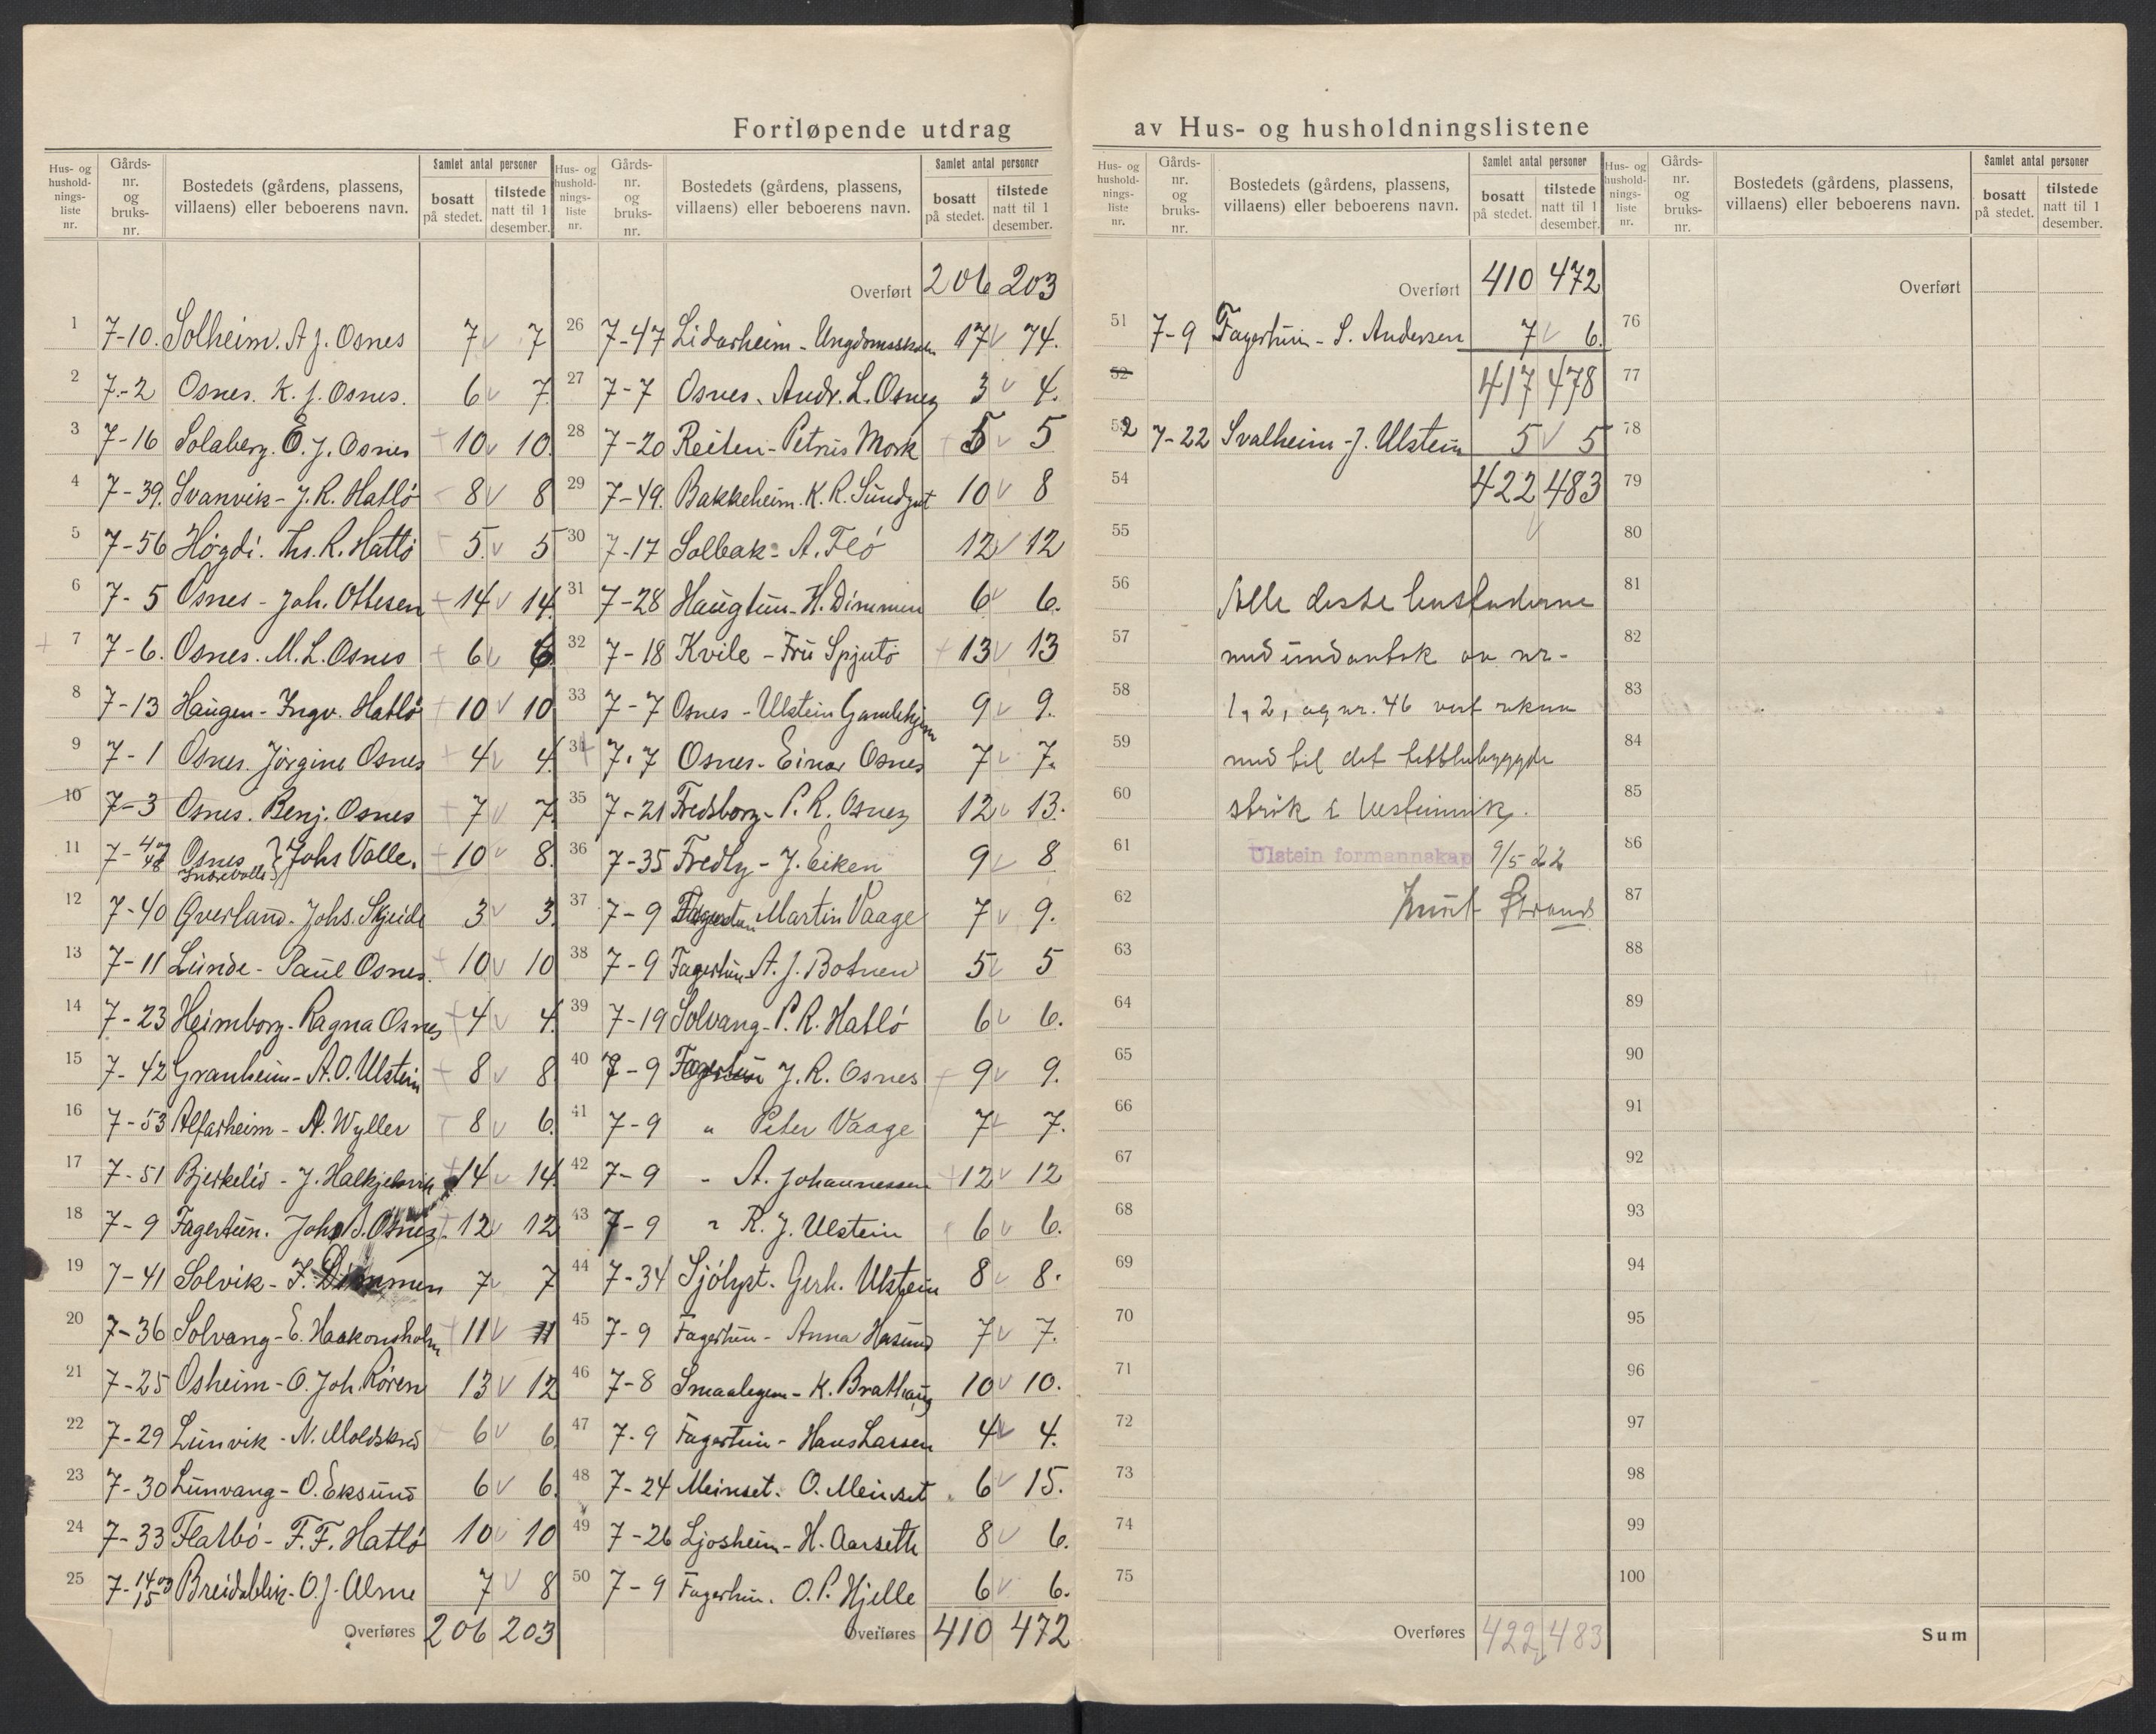 Fortløpende utdrag av Hus- og husholdningslistene
Hus- og hushold- nings- liste nr. Gårds- nr. og bruks- nr. Bostedets (gårdens, plassens, villaens) eller beboerens navn. Samlet antal personer bosatt på stedet. tilstede natt til 1 desember.
1 7-10. Solheim. A J. Osnes 7 7
2 7-2 Osnes. K. J. Osnes. 6 7
3 7-16 Solaberg. E. J. Osnes 10 10
4 7-39. Svanvik - J. R. Hatlö 8 8
5 7-56 Høgdi. Ths. R. Hatlö 5 5
6 7-5 Osnes - Joh. Ottesen 14 14
7 7-6. Osnes. M. L. Osnes 6 6
8 7-13 Haugen - Ingv. Hatlö 10 10
9 7-1 Osnes. Jörgine Osnes 4 4
10 7-3 Osnes. Benj. Osnes 7 7
11 7-4 og 48 Osnes Indrevolle } Johs Valle. 10 8
12 7-40 Överland - Johs. Skeide 3 3
13 7-11 Lunde - Paul Osnes. 10 10
14 7-23 Heimborg - Ragna Osnes 4 4
15 7-42 Granheim - A. O. Ulstein 8 8
16 7-53 Alfarheim - A. Wyller 8 6
17 7-51 Bjerkelid - J. Halkjelsvik 14 14
18 7-9 Fagertun. Joh. J. Osnes 12 12
19 7-41 Solvik - J. Dimmen 7 7
20 7-36 Solvang - E. Haakonsholm 11 11
21 7-25 Osheim - O. Joh. Rören 13 12
22 7-29 Lunvik - N. Moldskred 6 6
23 7-30 Lunvang - O. Eksund 6 6
24 7-33 Flatbö - F. F. Hatlö 10 10
25 7-14 og 15 Breidablik - O. J. Alme 7 8
Overføres 206 203
Hus- og hushold- nings- liste nr. Gårds- nr. og bruks- nr. Bostedets (gårdens, plassens, villaens) eller beboerens navn. Samlet antal personer bosatt på stedet. tilstede natt til 1 desember.
Overført 206 203
26 7-47 Lidarheim - Ungdomsskulen 17 74.
27 7-7 Osnes. Andr. L. Osnes 3 4.
28 7-20 Reiten - Petrus Mork 5 5
29 7-49. Bakkeheim. K. R. Sundgot 10 8
30 7-17 Solbak - A. Flö 12 12
31 7-28 Haugtun - H. Dimmen 6 6.
32 7-18 Kvile - Fru Spjutö 13 13
33 7-7 Osnes - Ulstein Gamlehjem 9 9.
34 7-7 Osnes - Einar Osnes 7 7.
35 7-21 Fredsborg - P. R. Osnes 12 13.
36 7-35 Fredly - J. Eiken 9 8
37 7-9 Fagertun Martin Vaage 7 9.
38 7-9 Fagertun A. J. Botnen 5 5
39 7-19 Solvang - P. R. Hatlö 6 6.
40 7-9 Fagertun J. R. Osnes 9 9.
41 7-9 " Peter Vaage 7 7.
42 7-9 " A. Johannessen 12 12
43 7-9 " R. J. Ulstein 6 6.
44 7-34 Sjölyst - Gerh. Ulstein 8 8.
45 7-9 Fagertun - Anna Hasund 7 7.
46 7-8 Smaalegene - K. Brathaug 10 10.
47 7-9 Fagertun - Hans Larsen 4 4.
48 7-24 Meinset. O. Meinset 6 15.
49 7-26 Ljosheim - H. Aarseth 8 6.
50 7-9 Fagertun. O. P. Hjelle 6 6.
Overføres 410 472
Hus- og hushold- nings- liste nr. Gårds- nr. og bruks- nr. Bostedets (gårdens, plassens, villaens) eller beboerens navn. Samlet antal personer bosatt på stedet. tilstede natt til 1 desember.
Overført 410 472
51 7-9 Fagertun - S. Andersen 7 6.
52 417 478
52 7-22 Svalheim - J. Ulstein 5 5
54 422 483
55
56 Alle desse husfaderne
57 med undantak av nr-
58 1, 2, og nr. 46 vert rekna
59 med til det tettbebyggde
60 strök i
61 Ulstein formannskap 9/5 22
62 Knut Strand
63
64
65
66
67
68
69
70
71
72
73
74
75
Overføres 422 483
Hus- og hushold- nings- liste nr. Gårds- nr. og bruks- nr. Bostedets (gårdens, plassens, villaens) eller beboerens navn. Samlet antal personer bosatt på stedet. tilstede natt til 1 desember.
Overført
76
77
78
79
80
81
82
83
84
85
86
87
88
89
90
91
92
93
94
95
96
97
98
99
100
Sum